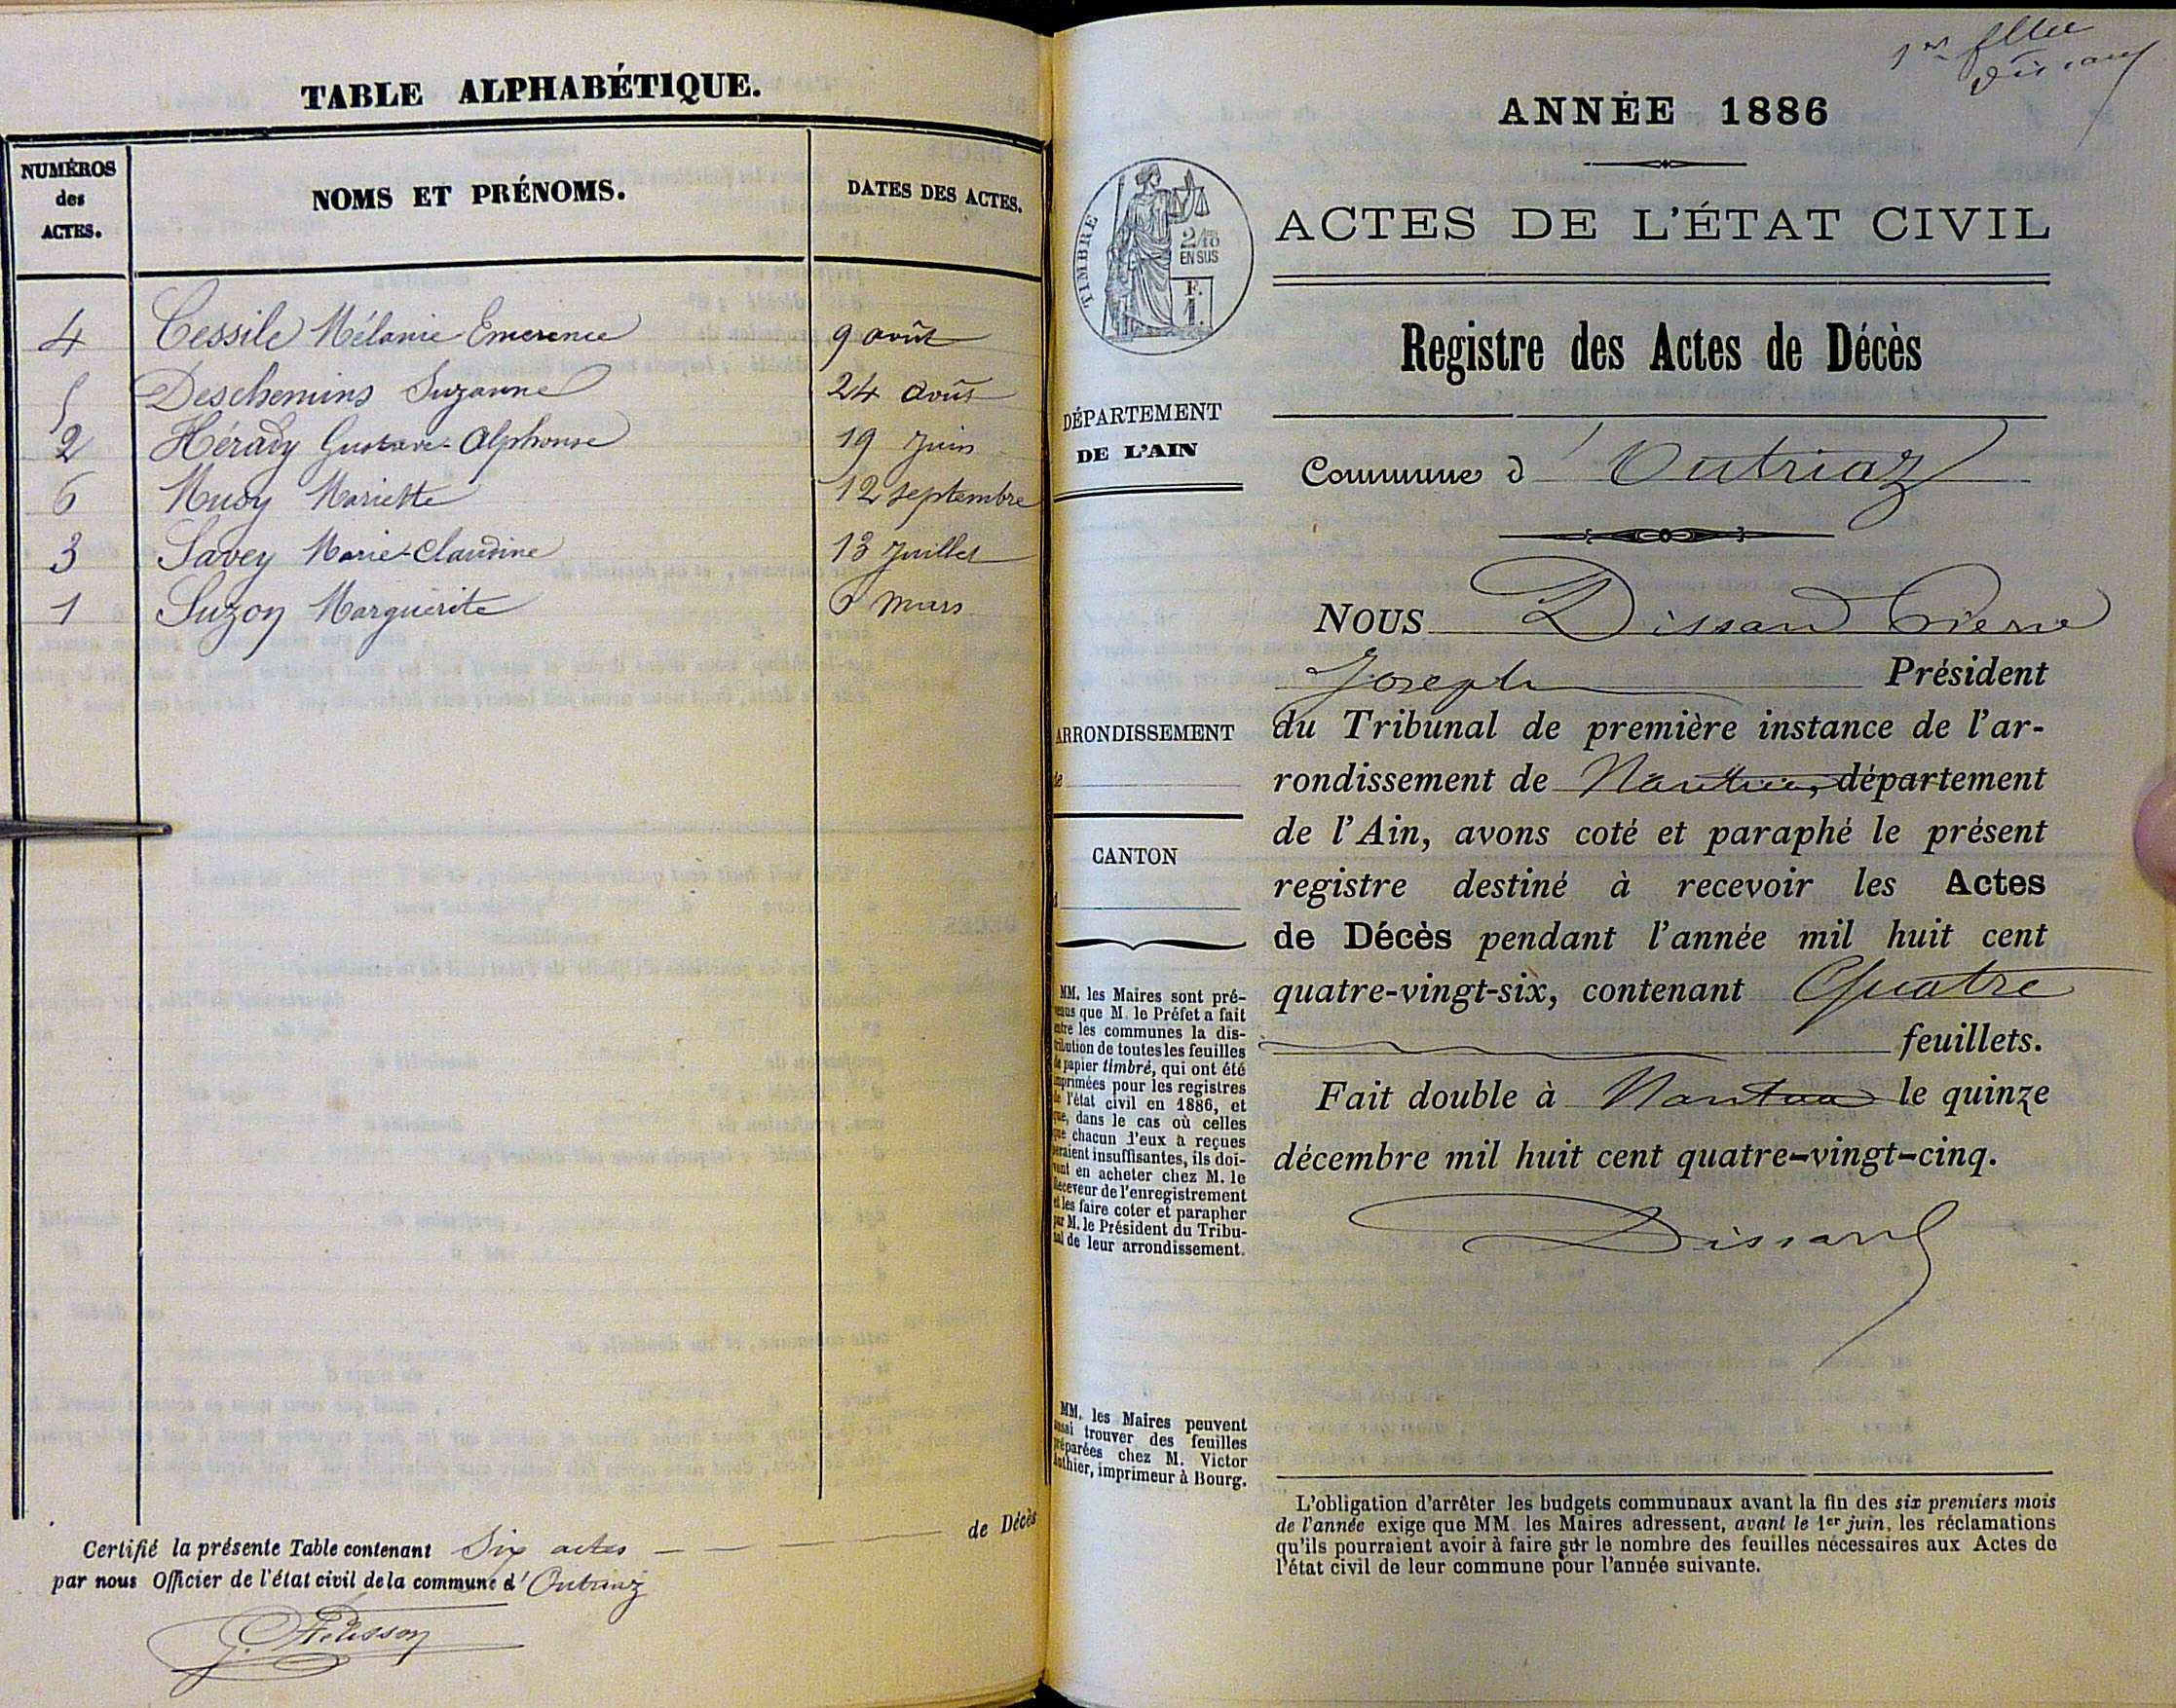 TABLE ALPHABÉTIQUE.
NUMÉROS
des
ACTES.
NOMS ET PRÉNOMS.
DATES DES ACTES.
4 Cessile Mélanie-Emerence 9 août
5 Deschemins Suzanne 24 août
2 Hérady Gustave-Alphonse 19 Juin
6 Mariette 12 septembre
3 Savey Marie-Claudine 13 Juillet
1 Suzon Marguerite 6 mars
Certifié la présente Table contenant Six actes de Décès
par nous Officier de l'état civil de la commune d'Outriaz
1er flleu
Dissard
ANNÉE 1886
TIMBRE
2/10
EN SUS
F.
1.
ACTES DE L'ÉTAT CIVIL
Registre des Actes de Décès
DÉPARTEMENT
DE L'AIN
Commune d'Outriaz
NOUS Dissard Pierre
Joseph Président
du Tribunal de première instance de l'ar-
rondissement de Nantua, département
de l'Ain, avons coté et paraphé le présent
registre destiné à recevoir les Actes
de Décès pendant l'année mil huit cent
quatre-vingt-six, contenant Quatre
feuillets.
Fait double à Nantua le quinze
décembre mil huit cent quatre-vingt-cinq.
Dissard
ARRONDISSEMENT
de
CANTON
d
MM. les Maires sont pré-
venus que M. le Préfet a fait
entre les communes la dis-
tribution de toutes les feuilles
de papier timbré, qui ont été
imprimées pour les registres
de l'état civil en 1886, et
que, dans le cas où celles
que chacun d'eux a reçues
seraient insuffisantes, ils doi-
vent en acheter chez M. le
Receveur de l'enregistrement
et les faire coter et parapher
par M. le Président du Tribu-
nal de leur arrondissement.
MM. les Maires peuvent
aussi trouver des feuilles
préparées chez M. Victor
Authier, imprimeur à Bourg.
L'obligation d'arrêter les budgets communaux avant la fin des six premiers mois
de l'année exige que MM. les Maires adressent, avant le 1er juin, les réclamations
qu'ils pourraient avoir à faire sur le nombre des feuilles nécessaires aux Actes de
l'état civil de leur commune pour l'année suivante.